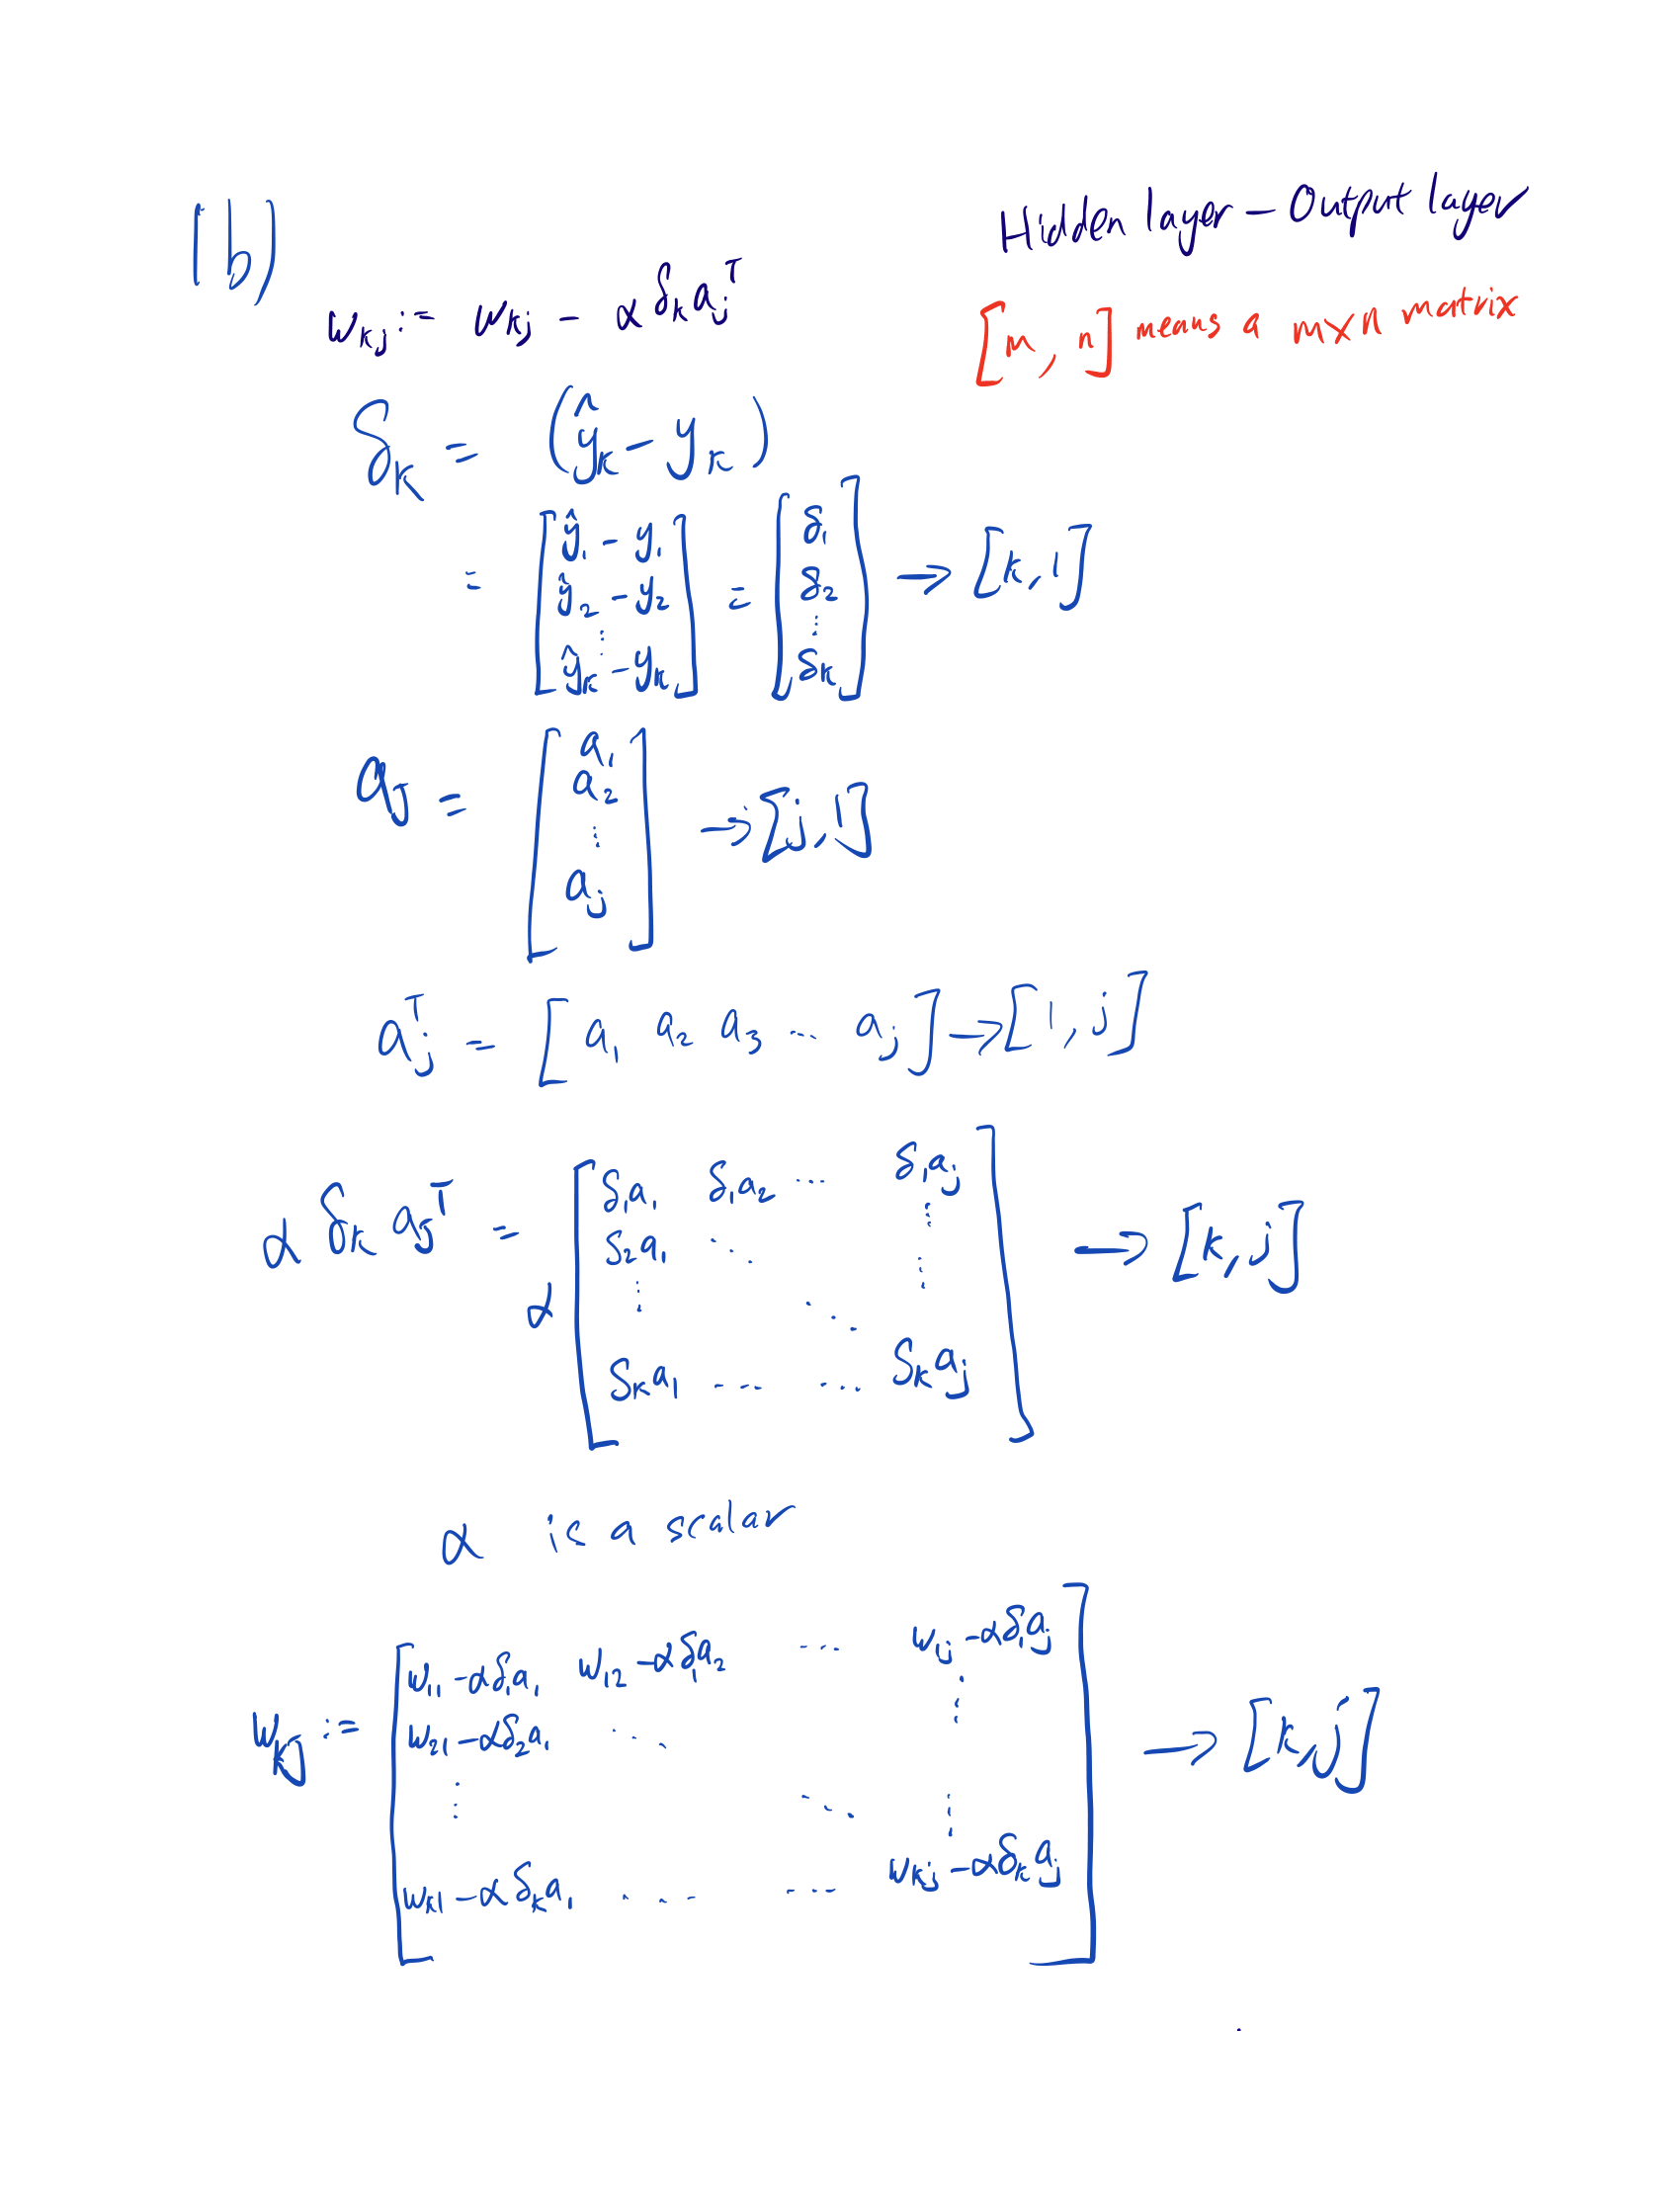 1b)
Hidden layer – Output layer
w_kj := w_kj − α δ_k a_j^T
[m, n] means a m×n matrix
δ_k = (ŷ_k − y_k)
= [ŷ_1 − y_1
ŷ_2 − y_2
⋮
ŷ_k − y_k] = [δ_1
δ_2
⋮
δ_k] → [k, 1]
a_j = [a_1
a_2
⋮
a_j] → [j, 1]
a_j^T = [a_1 a_2 a_3 ... a_j] → [1, j]
α δ_k a_j^T = α [δ_1a_1 δ_1a_2 ... δ_1a_j
δ_2a_1 ⋱ ⋮
⋮ ⋱ ⋮
δ_ka_1 ... ... δ_ka_j] → [k, j]
α is a scalar
w_kj := [w_11 − αδ_1a_1 w_12 − αδ_1a_2 ... w_1j − αδ_1a_j
w_21 − αδ_2a_1 ⋱ ⋮
⋮ ⋱ ⋮
w_k1 − αδ_ka_1 ... ... w_kj − αδ_ka_j] → [k, j]